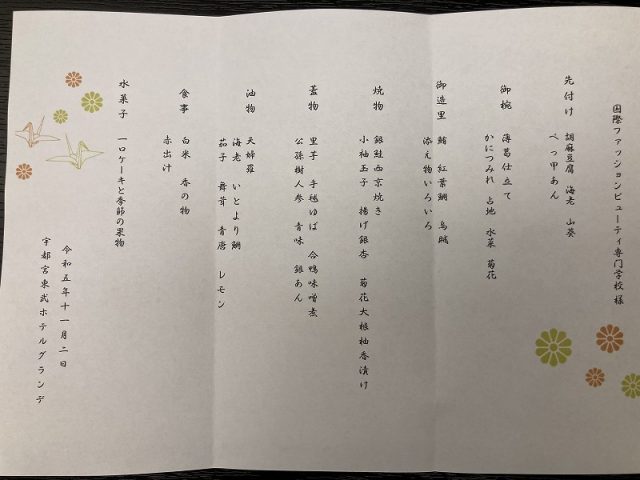 国際ファッションビューティ専門学校様
先付け 胡麻豆腐 海老 山葵
べっ甲あん
御椀 薄葛仕立て
かにつみれ 占地 水菜 菊花
御造里 鮪 紅葉鯛 烏賊
添え物いろいろ
焼物 銀鮭西京焼き
小袖玉子 揚げ銀杏 菊花大根柚香漬け
蓋物 里芋 手毬ゆば 合鴨味噌煮
公孫樹人参 青味 銀あん
油物 天婦羅
海老 いとより鯛
茄子 舞茸 青唐 レモン
食事 白米 香の物
赤出汁
水菓子 一口ケーキと季節の果物
令和五年十一月二日
宇都宮東武ホテルグランデ